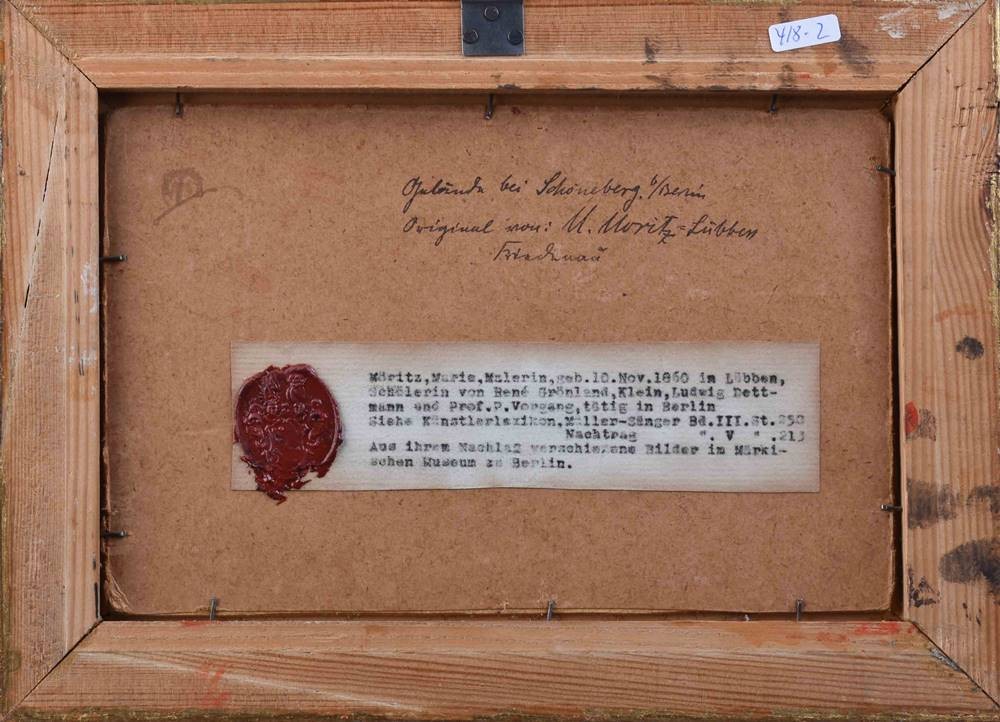 418-2
Gelände bei Schöneberg b/Berlin
Original von: M. Moritz-Lübben
Friedenau
Moritz,Marie,Malerin,geb.10.Nov.1860 in Lübben,
Schülerin von René Grönland,Klein,Ludwig Dett-
mann und Prof.P.Vorgang,tätig in Berlin
Siehe Künstlerlexikon,Müller-Singer Bd.III.St.250
Nachtrag ". V " .213
Aus ihrem Nachlaß verschiedene Bilder im Märki-
schen Museum zu Berlin.